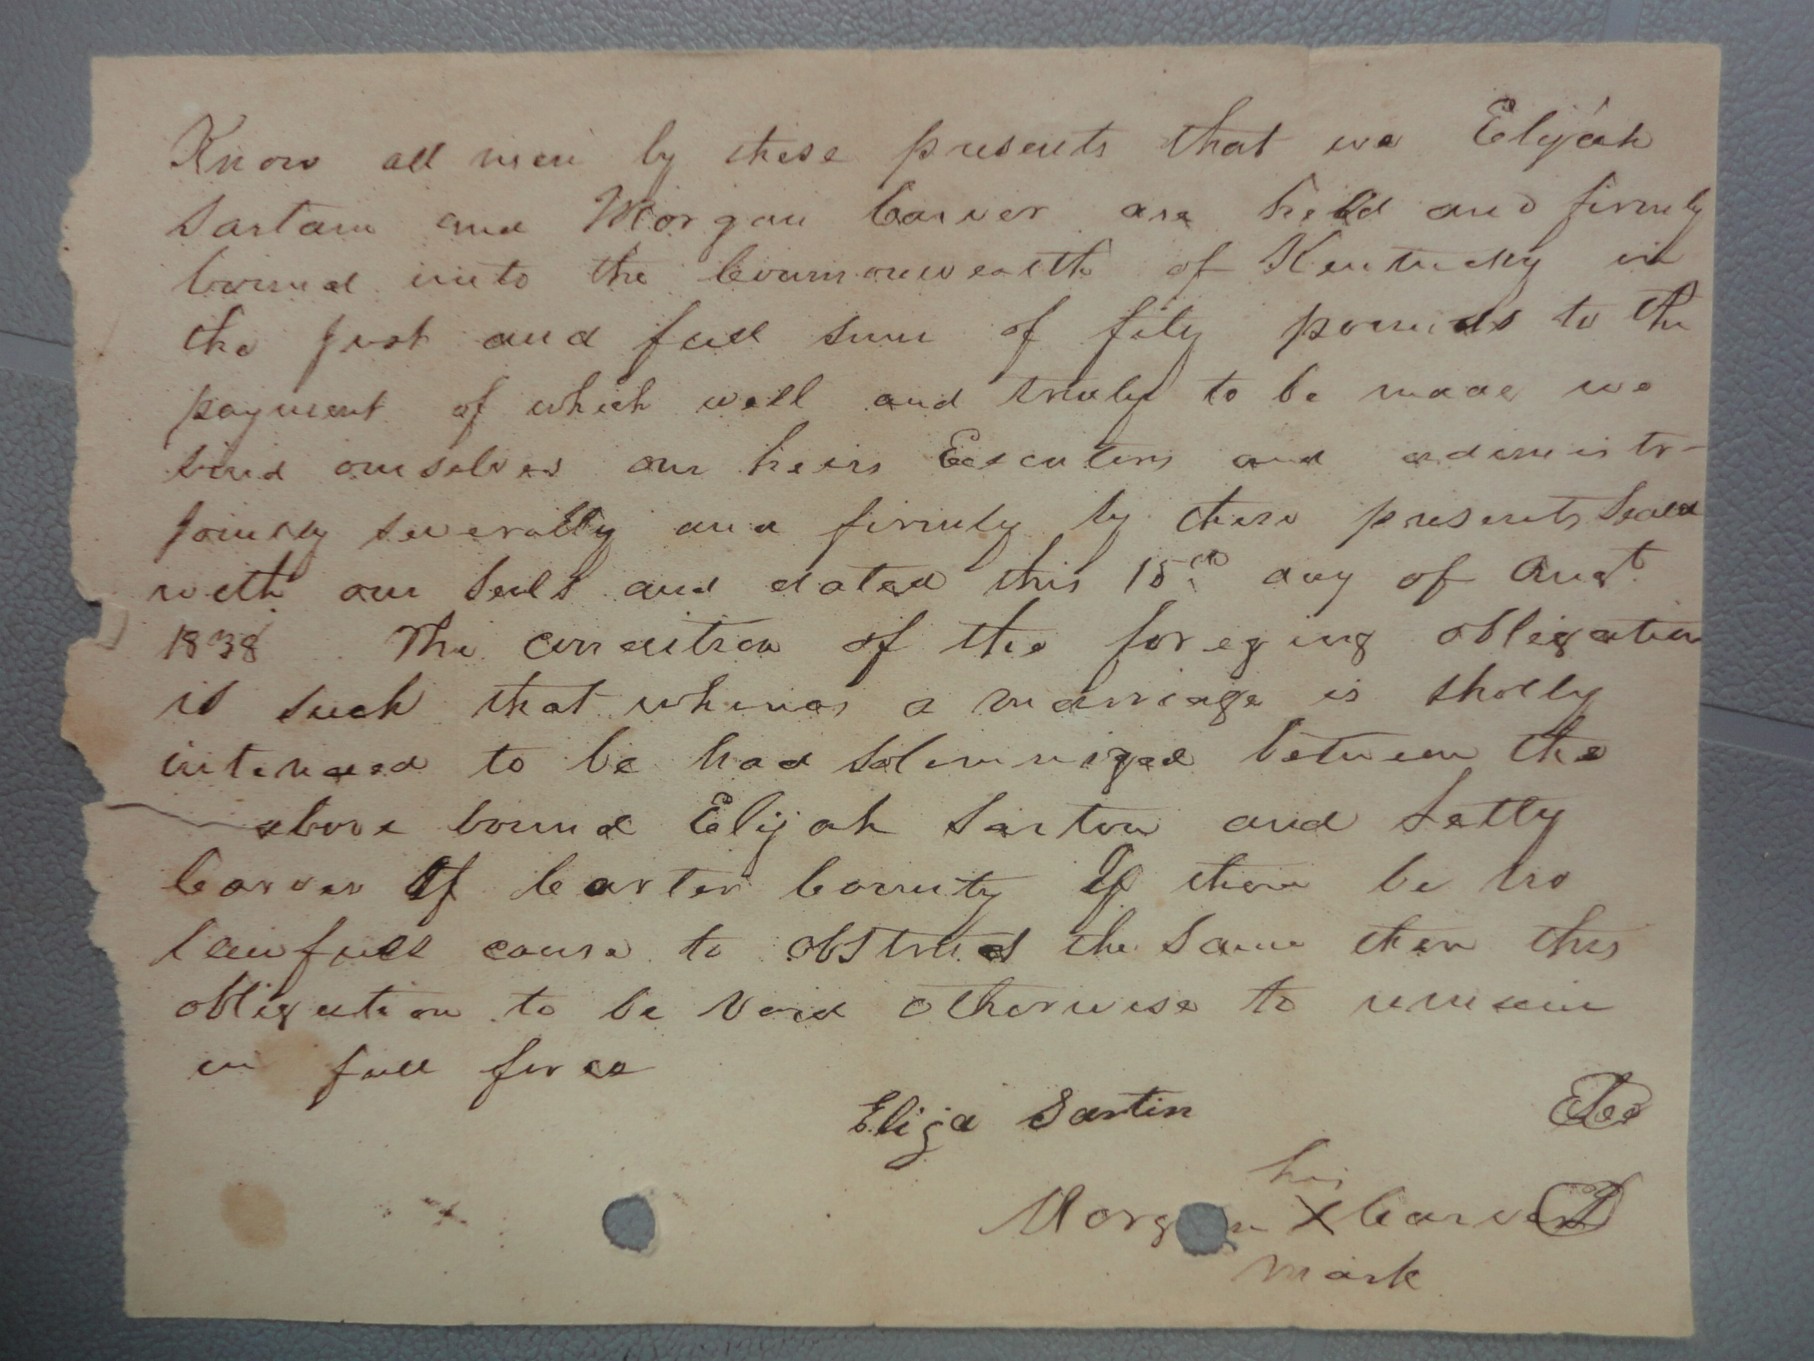 Know all men by these presents that we Elijah
Sartain and Morgan Carver are held and firmly
bound unto the Commonwealth of Kentucky in
the Just and full sum of fity pounds to the
payment of which well and truly to be made we
bind ourselves our heirs Executors and administr-
Jointly severally and firmly by these presents Seald
with our Seals and dated this 15th day of Augt
1838 The condition of the foreging obligation
is such that whereas a marriage is shotly
intended to be had Solemnized between the
above bound Elijah Sarton and Letty
Carver of Carter County If there be no
lawfull cause to obstruct the same then this
obligation to be Void otherwise to remain
in full force
Elija Sartin
his
Morgan X Carver
mark